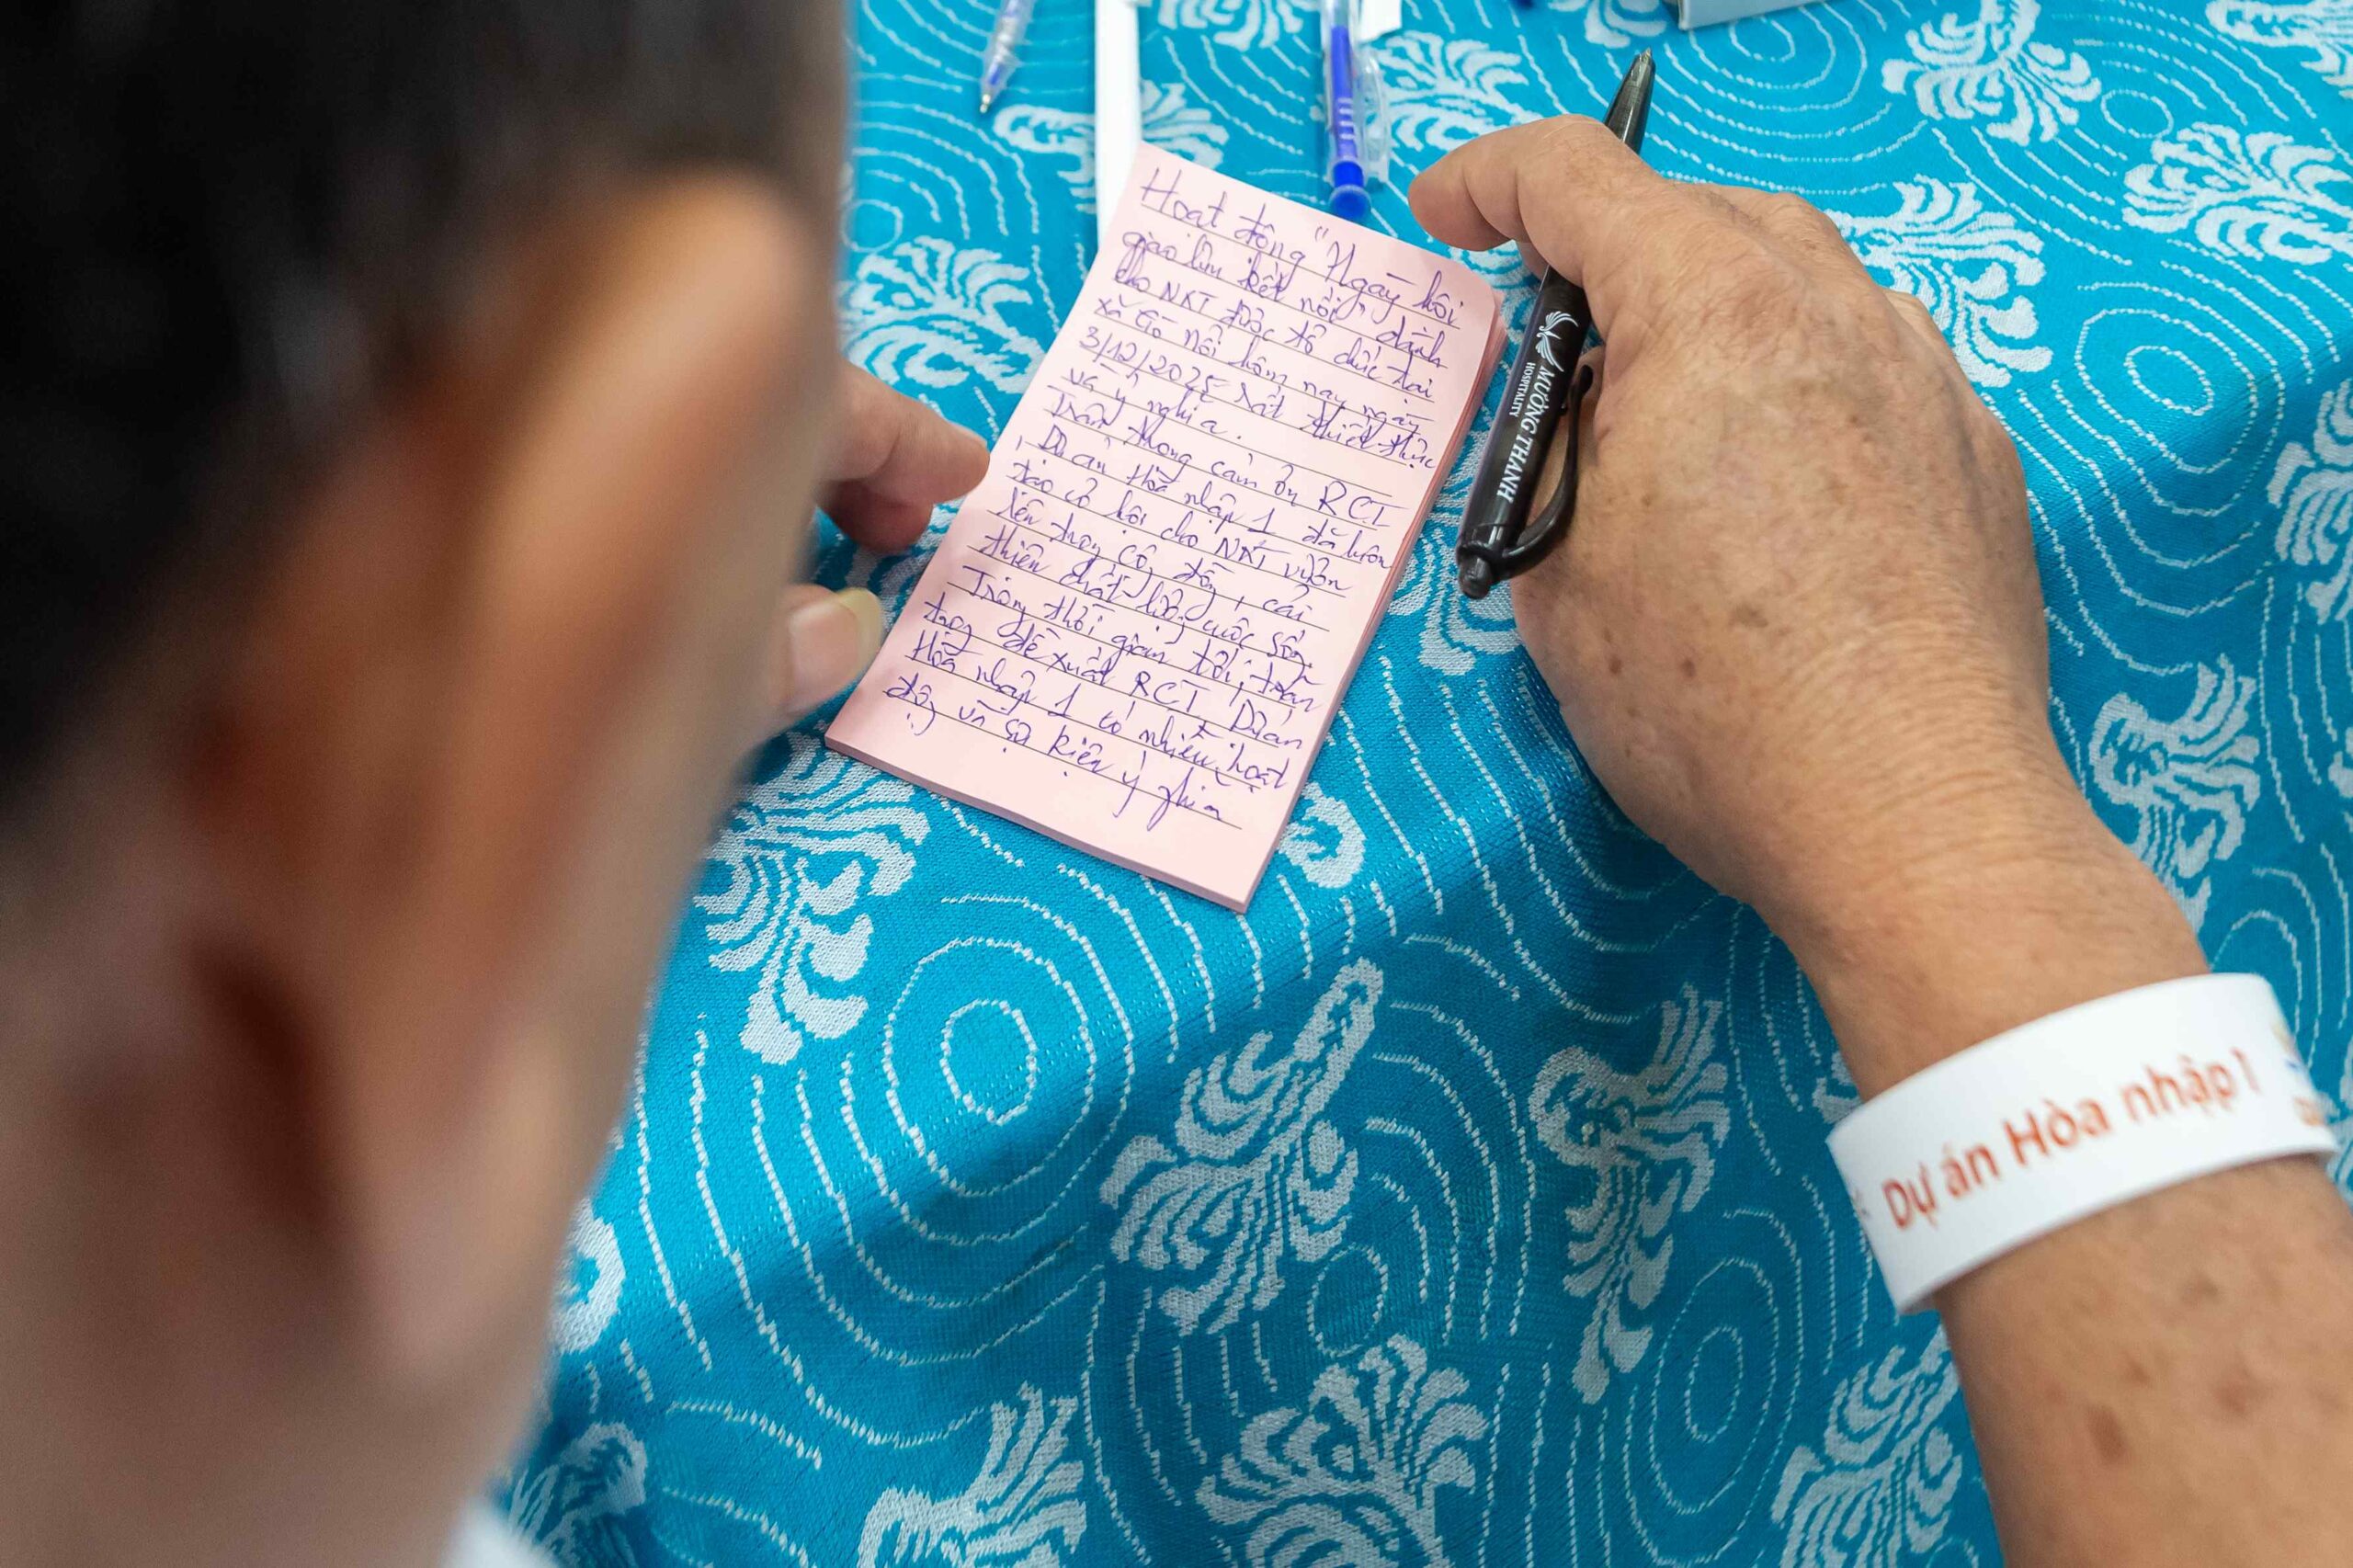 Hoạt động "Ngày hội
giao lưu kết nối" dành
cho NKT được tổ chức tại
xã Gò Nổi hôm nay ngày
3/12/2025 rất thiết thực
và ý nghĩa.
Trân trọng cảm ơn RCI
, Dự án Hòa nhập 1 đã luôn
tạo cơ hội cho NKT vươn
lên trong cộng đồng, cải
thiện chất lượng cuộc sống.
Trong thời gian tới, trân
trọng đề xuất RCI, Dự án
Hòa nhập 1 có nhiều hoạt
động và sự kiện ý nghĩa
MƯỜNG THANH
HOSPITALITY
Dự án Hòa nhập 1